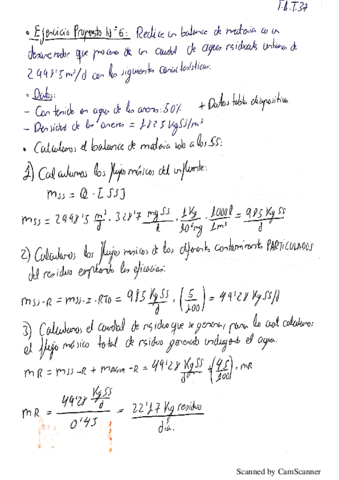 T.A.T.37
• Ejercicio Propuesto Nº6: Realice un balance de materia en un
desarenador que procesa de un caudal de agua residual urbana de
2998'5 m³/d con las siguientes características:
• Datos:
- Contenido en agua de las arenas: 50% + Datos tabla diapositiva
- Densidad de las arenas = 1825 Kg SS/m³
• Calculamos el balance de materia solo a los SS:
1) Calculamos los flujos másicos del influente:
mss = Q · [SS]
mss = 2998'5 m³/d · 328'7 mg SS/l · 1Kg/10⁶mg · 1000l/1m³ = 985 Kg SS/d
2) Calculamos los flujos másicos de los diferentes contaminantes PARTICULADOS
del residuo empleando las eficacias:
mss-R = mss-I · RTO = 985 Kg SS/d · (5/100) = 49'28 Kg SS/d
3) Calculamos el caudal de residuo que se genera, para lo cual calculamos
el flujo másico total de residuo generado incluyendo el agua.
mR = mss-R + mAgua-R = 49'28 Kg SS/d + (45/100) · mR
mR = 49'28 Kg SS/d / 0'45 = 22'17 Kg residuo/dia.
Scanned by CamScanner